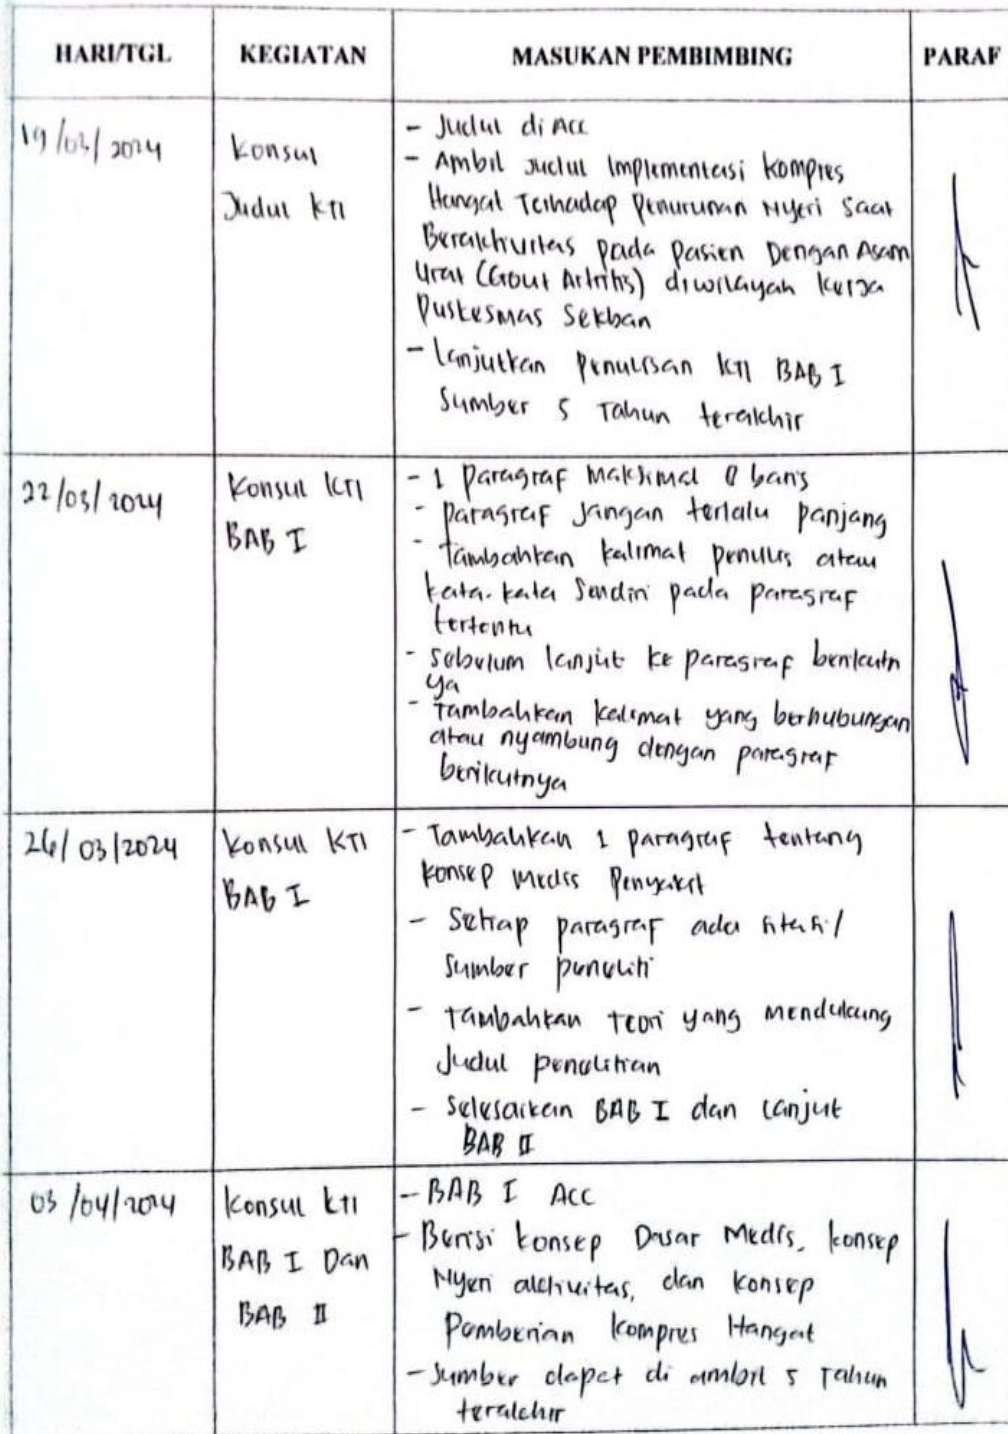 HARI/TGL KEGIATAN MASUKAN PEMBIMBING PARAF
19/03/2024
Konsul
Judul KTI
- Judul di Acc
- Ambil Judul Implementasi Kompres
Hangat Terhadap Penurunan Nyeri Saat
Berakhvitas pada Pasien Dengan Asam
Urat (Gout Artritis) diwilayah Kerja
Puskesmas Sekban
- Lanjutkan Penulisan KTI BAB I
Sumber 5 Tahun terakhir
22/03/2024
Konsul KTI
BAB I
- 1 Paragraf Maksimal 8 baris
- Paragraf Jangan terlalu panjang
- Tambahkan kalimat penulis atau
kata-kata Sendiri pada paragraf
tertentu
- Sebelum lanjut ke paragraf berikutn
ya
- Tambahkan kalimat yang berhubungan
atau nyambung dengan paragraf
berikutnya
26/03/2024
Konsul KTI
BAB I
- Tambahkan 1 paragraf tentang
Konsep Medis Penyakit
- Setiap paragraf ada sitasi/
Sumber peneliti
- Tambahkan Teori yang Mendukung
Judul penelitian
- Selesaikan BAB I dan Lanjut
BAB II
03/04/2024
Konsul KTI
BAB I Dan
BAB II
- BAB I ACC
- Berisi Konsep Dasar Medis, Konsep
Nyeri aktivitas, dan Konsep
Pemberian Kompres Hangat
- Sumber dapat di ambil 5 Tahun
terakhir